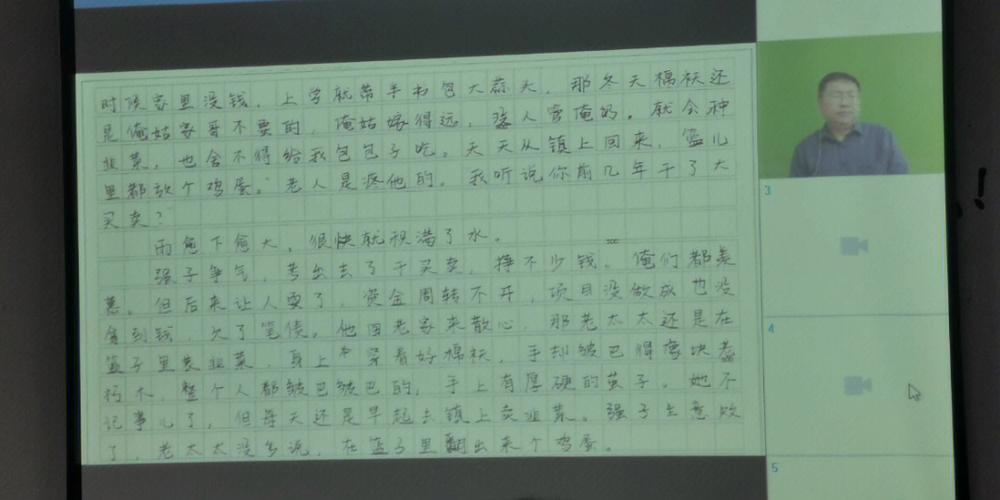 时候家里没钱，上学就带半书包大蒜头，那冬天棉袄还
是俺姑家哥不要的，俺姑嫁得远，强人害俺奶。就会种
韭菜，也舍不得给我包包子吃。天天从镇上回来，篮儿
里都放个鸡蛋。老人是疼他的。我听说你前几年干了大
买卖？
雨愈下愈大，很快就积满了水。
强子争气，考出去了干买卖，挣不少钱。俺们都羡
慕。但后来让人耍了，资金周转不开，项目没做成也没
拿到钱，欠了笔债。他回老家来散心，那老太太还是在
篮子里装韭菜，身上穿着好棉袄，手却皱巴得像块
朽木，整个人都皱巴皱巴的，手上有厚硬的茧子。她不
记事儿了，但每天还是早起去镇上卖韭菜。强子生意败
了，老太太没多说，在篮子里翻出来个鸡蛋。
3
4
5